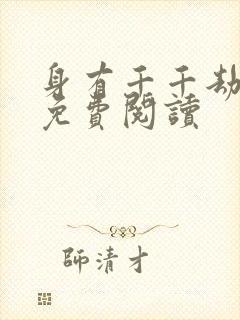 身有千千劫
免費閱讀
師清才